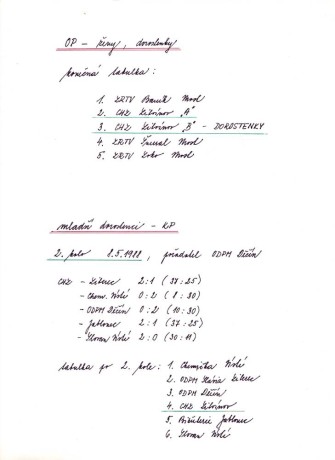 OP - ženy, dorostenky
konečná tabulka :
1. ZRTV Baník Most
2. CHZ Litvínov "A"
3. CHZ Litvínov "B" - DOROSTENKY
4. ZRTV Most
5. ZRTV Most
mladší dorostenci - KP
2. kolo 8.5.1988, pořadatel ODPM Děčín
CHZ - Liberec 2:1 (37:25)
- Chem. Ústí 0:2 (8:30)
- ODPM Děčín 0:2 (10:30)
- Jablonec 2:1 (37:25)
- Slovan Ústí 2:0 (30:11)
tabulka po 2. kole : 1. Chemička Ústí
2. ODPM Liberec
3. ODPM Děčín
4. CHZ Litvínov
5. Bižuterie Jablonec
6. Slovan Ústí